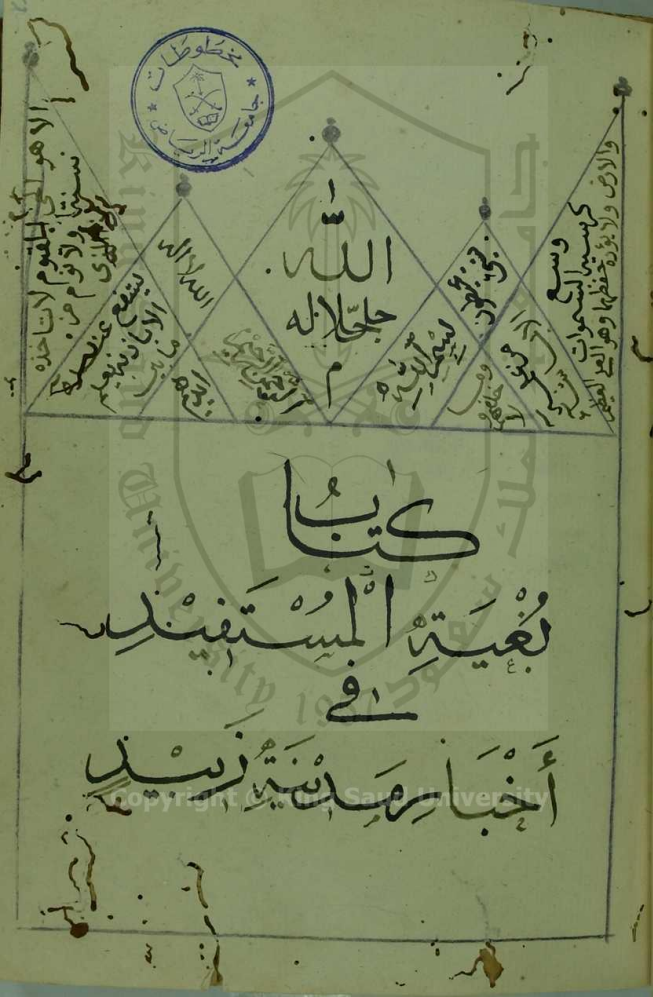 مخطوطات
جامعة الرياض
الله
جل جلاله
م
بسم الله
الرحمن الرحيم
الله لا اله
الا هو الحي القيوم لا تاخذه
سنة ولا نوم
يشفع عنده
الا باذنه يعلم
ما بين
وسع
كرسيه السموات
والارض ولا يؤده حفظهما وهو العلي العظيم
كتاب
بُغْيَةِ الْمُسْتَفِيْدِ
في
أَخْبَارِ مَدِيْنَةِ زَبِيْدٍ
King Saud University 1957
جامعة الملك سعود
Copyright © King Saud University